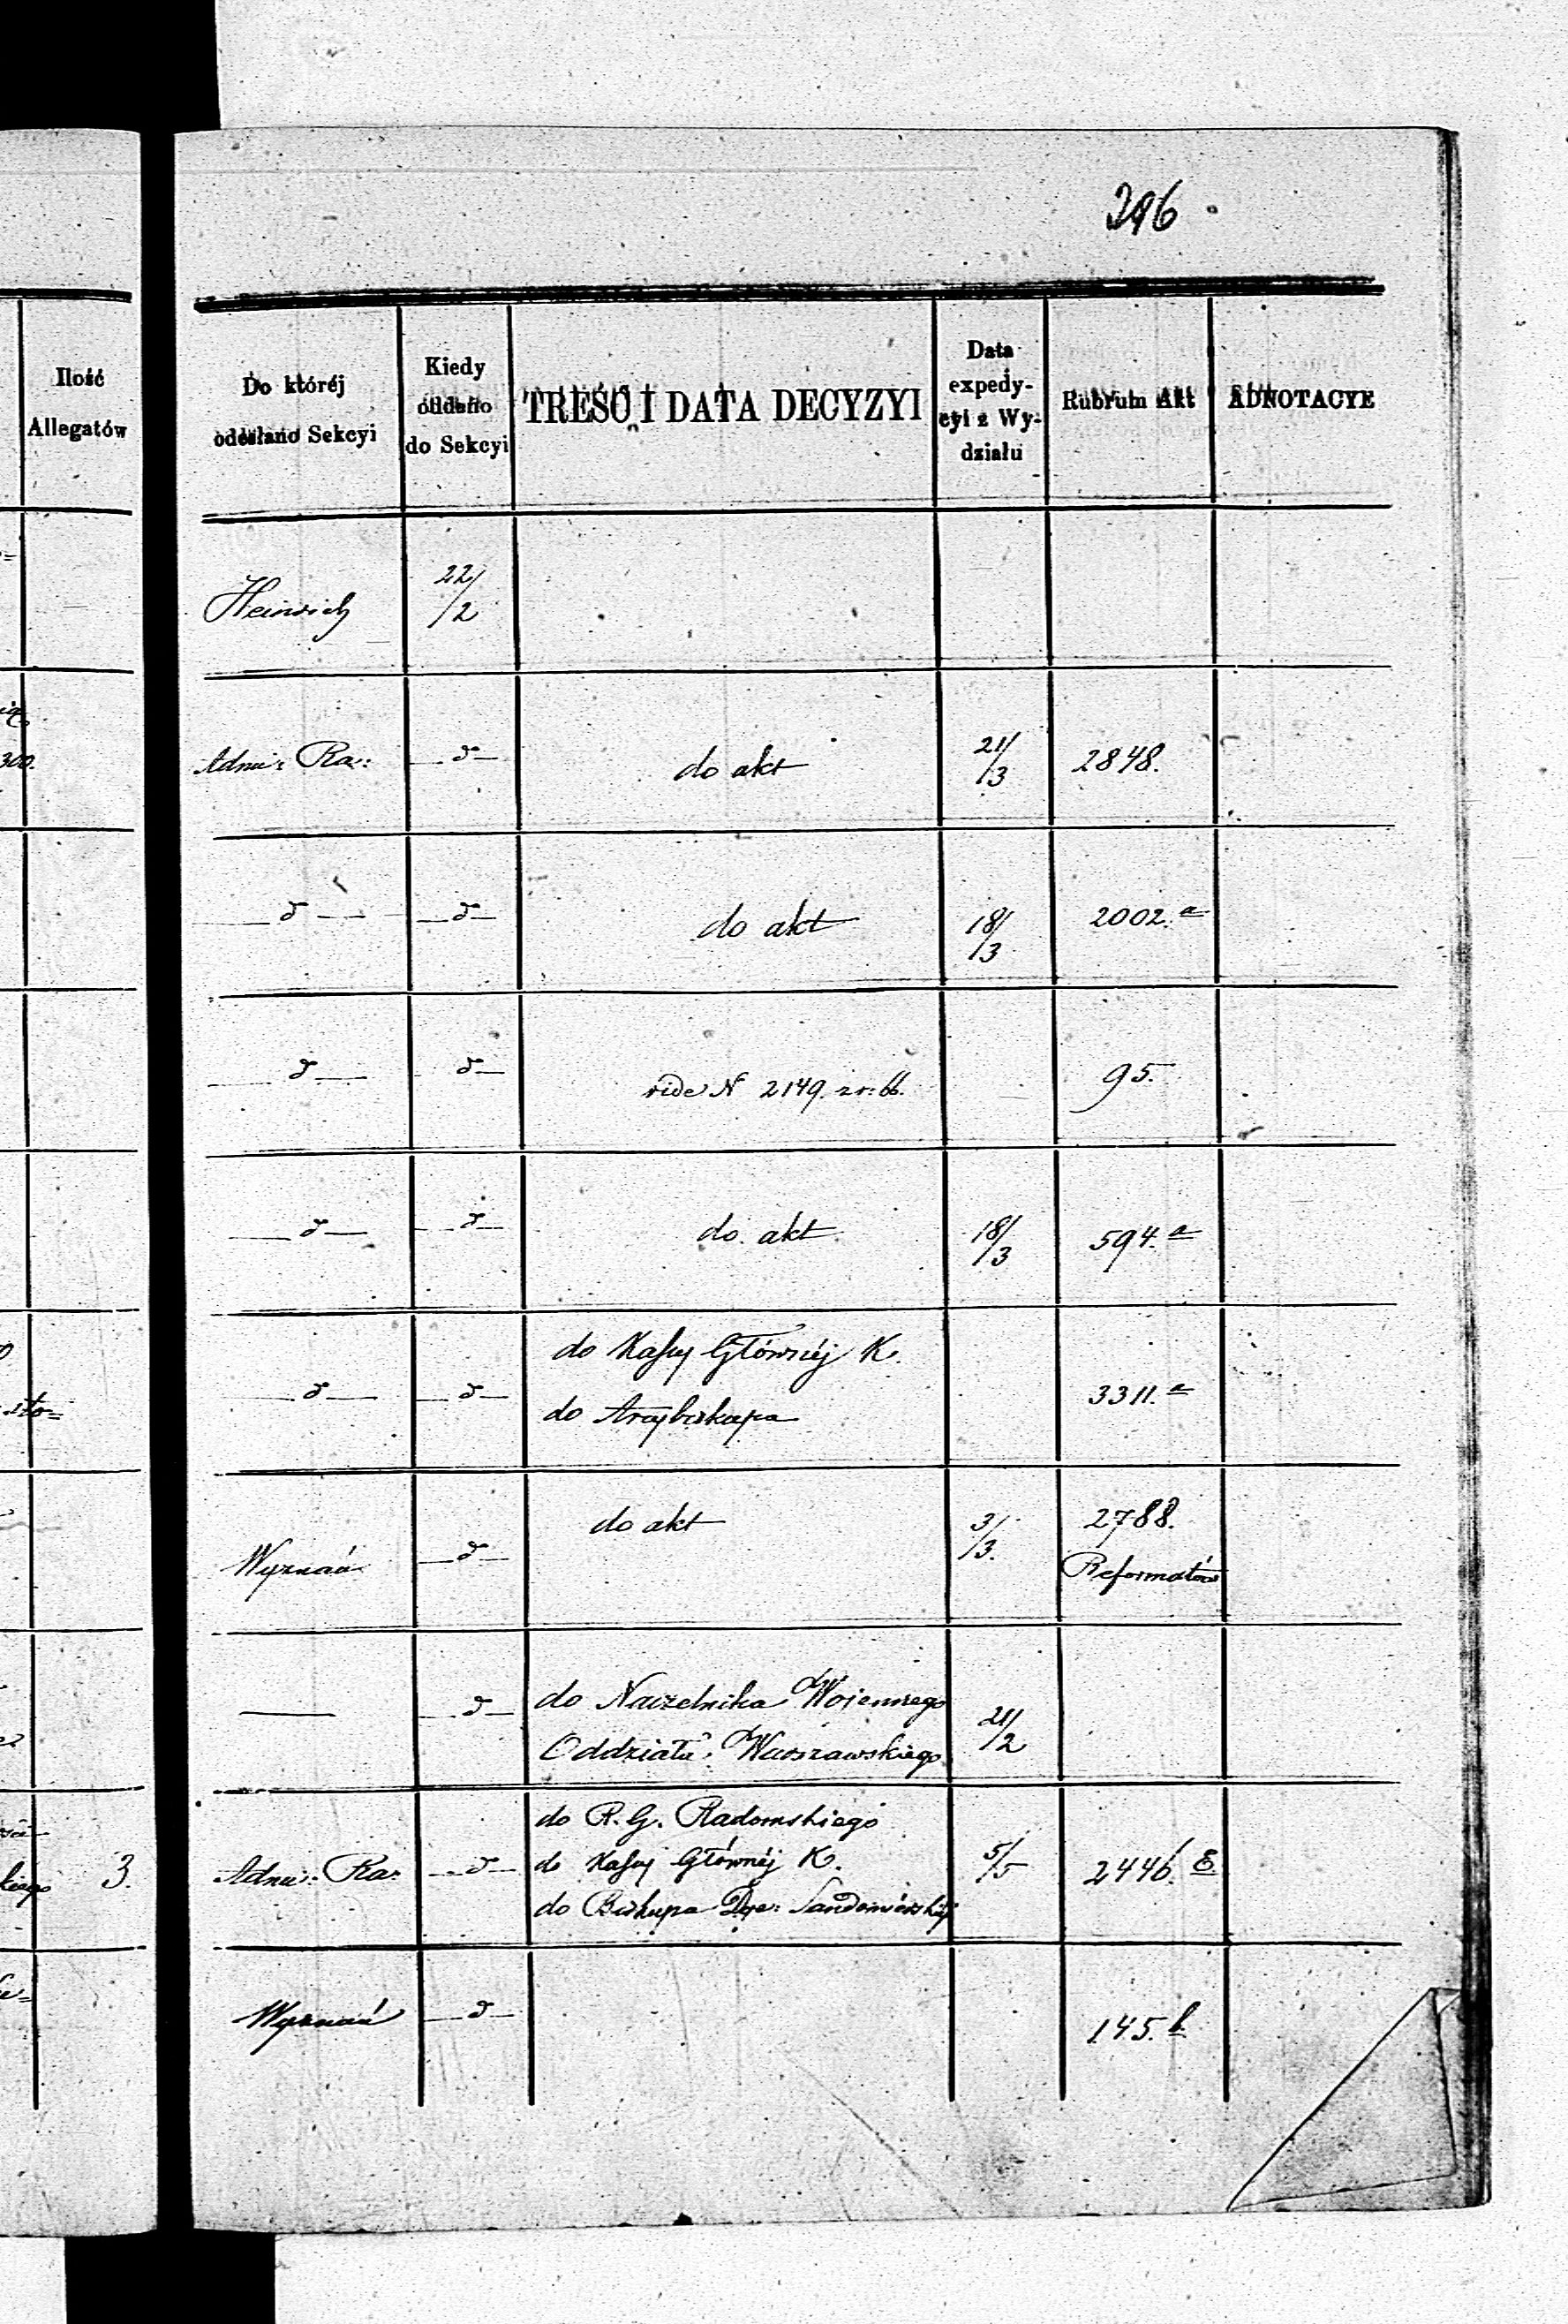 246
Ilość
Allegatów
Do któréj
odesłano Sekcyi
Kiedy
oddano
do Sekcyi
TREŚĆ I DATA DECYZYI
Data
expedy-
cyi z Wy-
działu
Rubrum Akt
ADNOTACYE
Heinrich 22/2
300. Adm: Ra: — d — do akt 21/3 2848.
— d — — d — do akt 18/3 2002. a
— d — — d — vide N 2149. z r: 66. 95.
— d — — d — do akt 18/3 594. a
do Kassy Głównéj K.
— d — — d — 3311. a
do Arcybiskupa
do akt 3/3. 2788.
Wyznań — d — Reformatów
do Naczelnika Wojennego
— — d — 21/2
Oddziału Warszawskiego
do R. G. Radomskiego
3. Adm: Ra: — d — do Kassy Głównéj K. 5/5 2446. E
do Biskupa Dye: Sandomierskiéj
Wyznań — d — 145. b